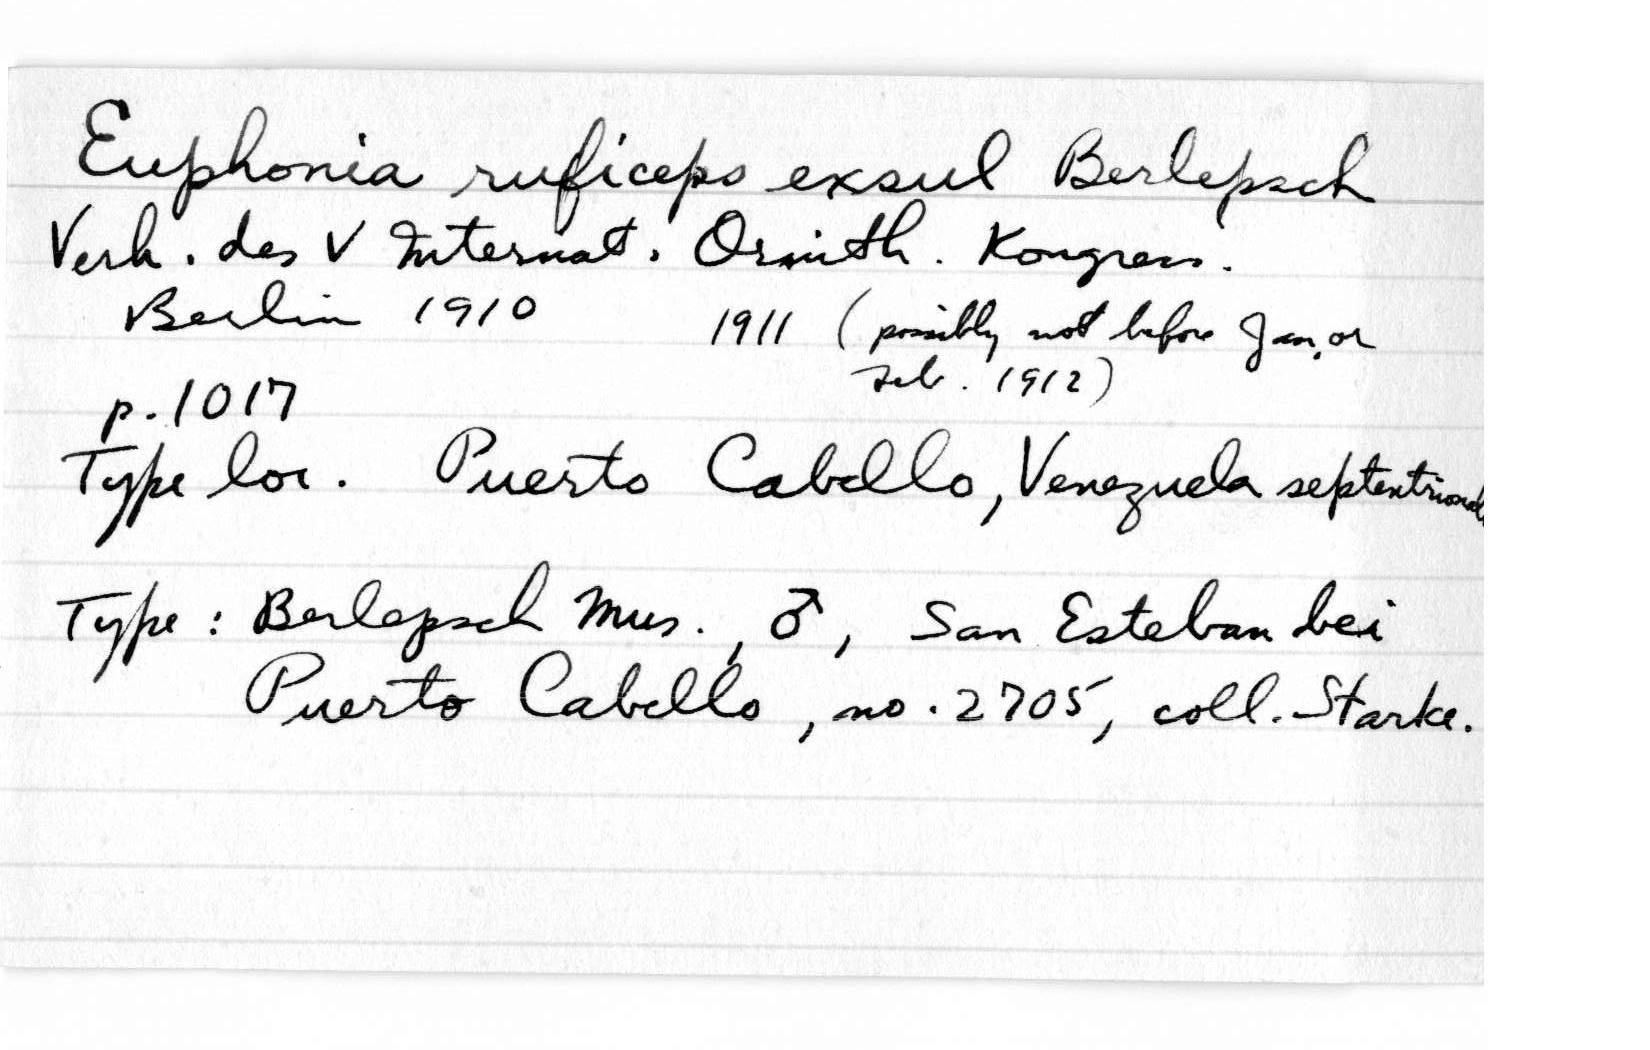 Euphonia ruficeps exsul Berlepsch
Verh. des V Internat. Ornith. Kongress.
Berlin 1910 1911 (possibly not before Jan. or
Feb. 1912)
p. 1017
Type loc. Puerto Cabello, Venezuela septentrional
Type: Berlepsch Mus., ♂, San Esteban bei
Puerto Cabello, no. 2705, coll. Starke.